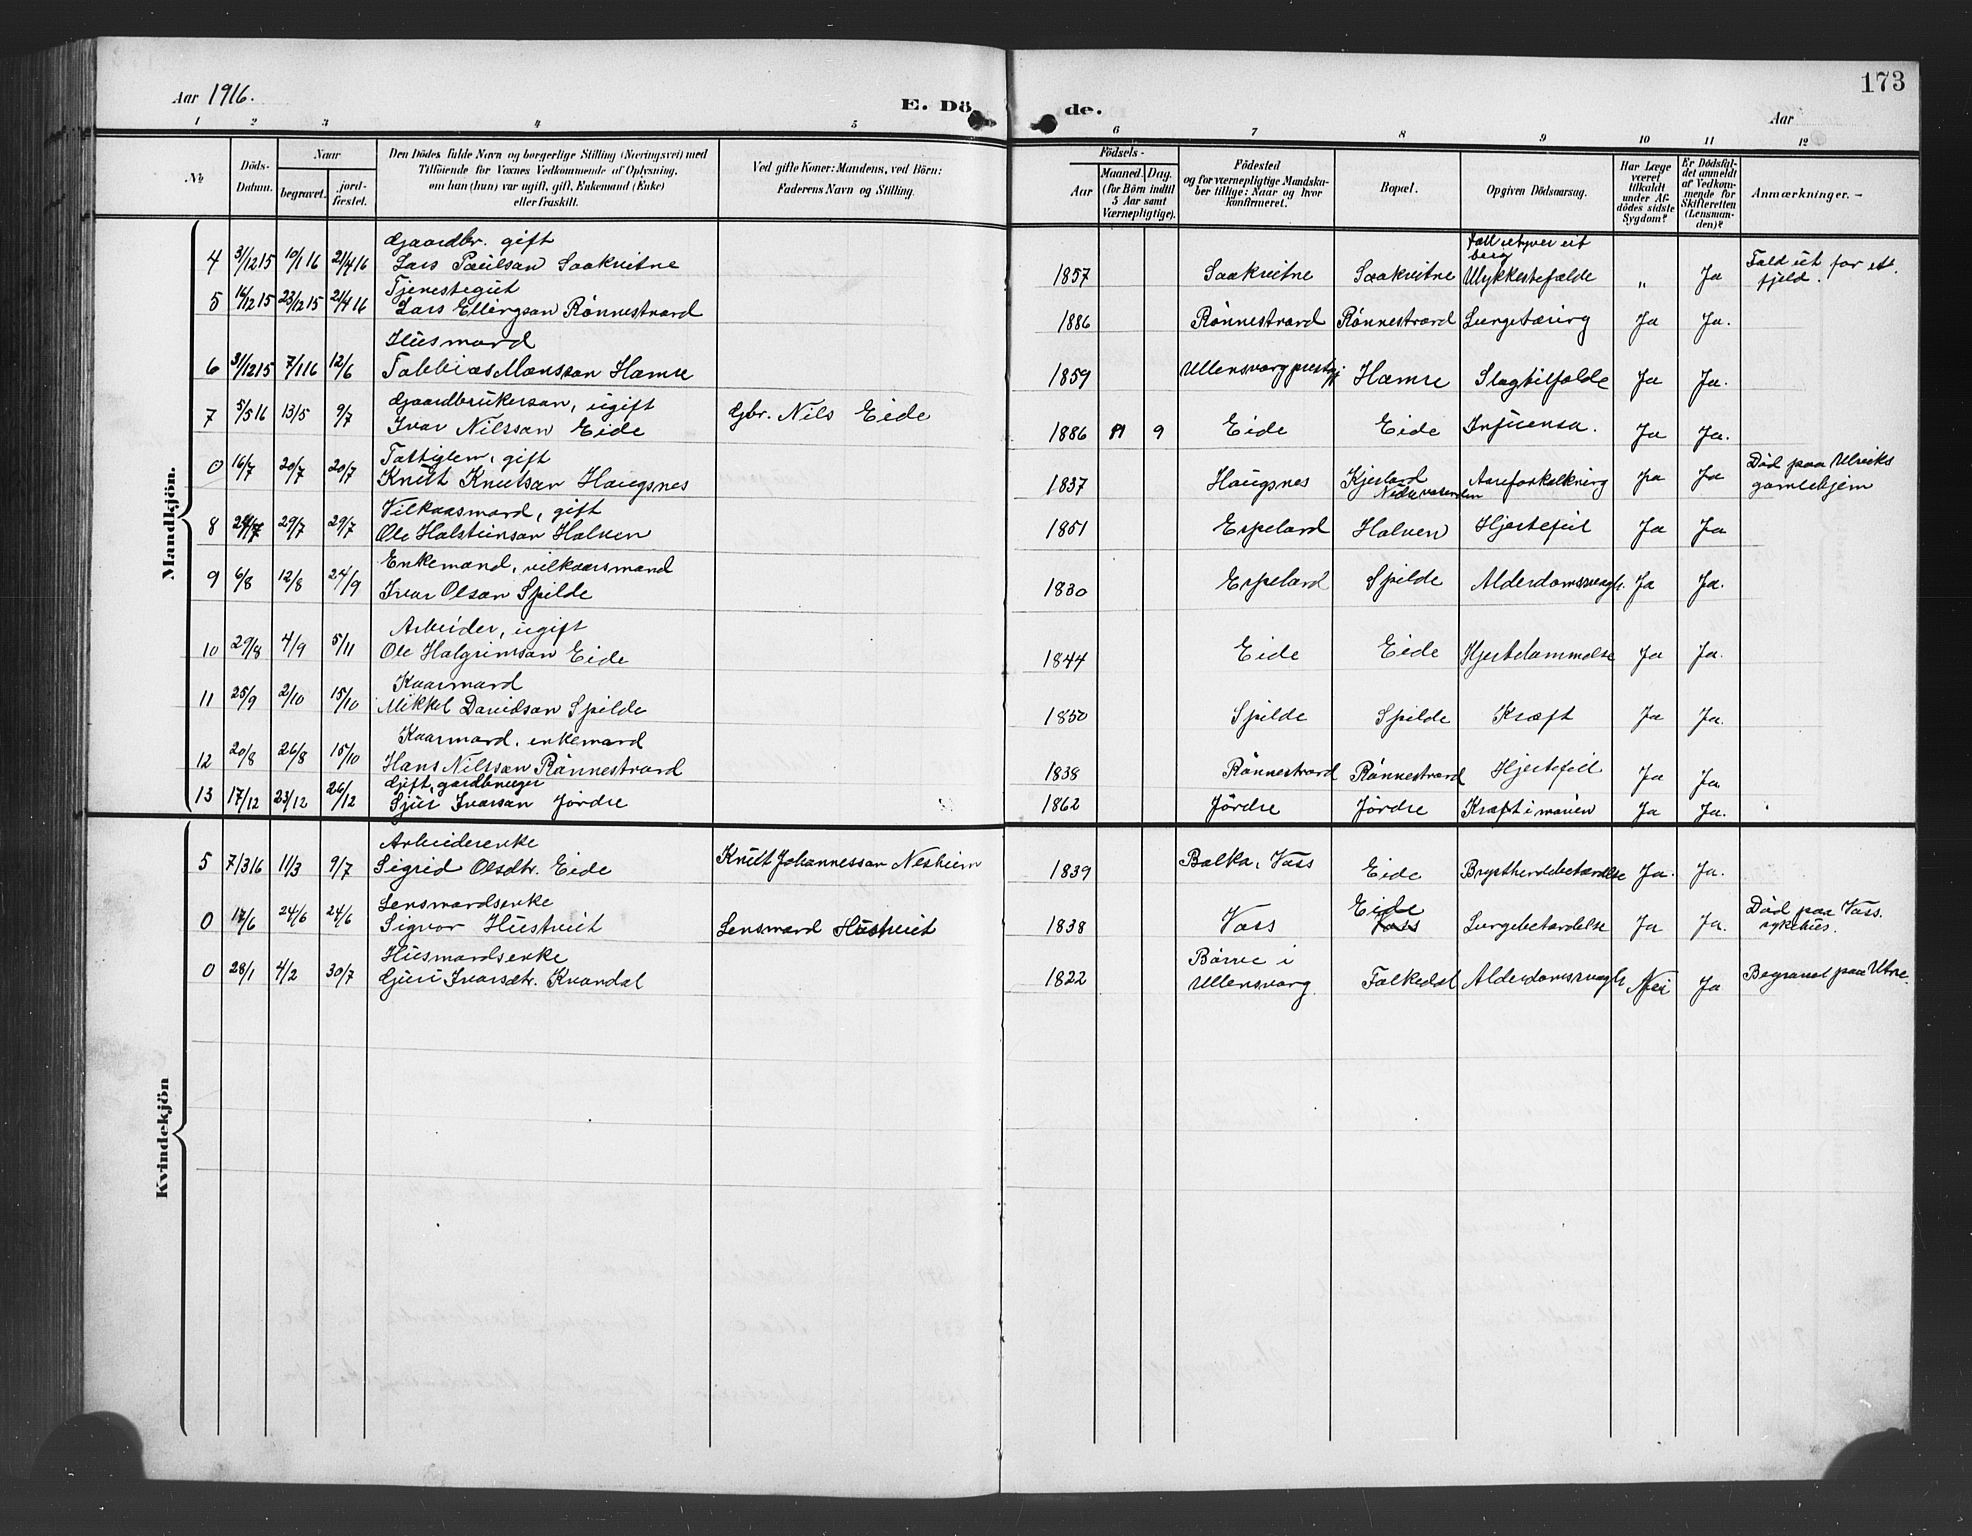 Aar 1916.
E. Döde.
Aar
173
1 2 3 4 5 6 7 8 9 10 11 12
No
Döds-Datum.
Naar
begravet.
jord-fæstet.
Den Dödes fulde Navn og borgerlige Stilling (Næringsvei) med
Tilföiende for Voxnes Vedkommende af Oplysning,
om han (hun) var ugift, gift, Enkemand (Enke)
eller fraskilt.
Ved gifte Koner: Mandens, ved Börn:
Faderens Navn og Stilling.
Födsels-
Aar
Maaned. Dag.
(for Börn indtil
5 Aar samt
Værnepligtige).
Födested
og for værnepligtige Mandska-
ber tillige: Naar og hvor
konfirmeret.
Bopæl.
Opgiven Dödsaarsag.
Har Læge
været
tilkaldt
under Af-
dödes sidste
Sygdom?
Er Dödsfal-
det anmeldt
af Vedkom-
mende for
Skifteretten
(Lensman-
den)?
Anmærkninger.-
Mandkjön.
Gaardbr. gift
4 31/12 15 10/1 16 21/4 16 Lars Paulsan Saakvitne 1857 Saakvitne Saakvitne Ulykkestefælde „ Ja Fald ut for et
fjeld.
Tjenestegut
5 16/12 15 23/12 15 2/4 16 Lars Ellingsan Rönnestrand 1886 Rönnestrand Rönnestrand Lungetæring Ja Ja.
Husmand
6 31/12 15 7/1 16 12/6 Tobbias Monssan Hamre 1859 Ullensvang prestgj Hamre Slagtilfælde Ja Ja.
Gaardbrukersøn, ugift
7 5/5 16 13/5 9/7 Ivar Nilssan Eide Gbr. Nils Eide 1886 11 9 Eide Eide Influensa. Ja Ja.
Fattiglem, gift
0 16/7 20/7 20/7 Knut Knutsan Haugsnes 1837 Haugsnes Kjerland
Aareforkalkning Ja Ja Død paa Ulviks
gamlehjem
Vilkaarsmand, gift
8 24/7 29/7 29/7 Ole Halsteinsan Halven 1851 Espeland Halven Hjertefeil Ja Ja
Enkemand, vilkaarsmand
9 6/8 12/8 24/9 Ivar Olsan Spilde 1830 Espeland Spilde Alderdomssvagh. Ja Ja.
Arbeider, ugift
10 29/8 4/9 5/11 Ole Halgrimsan Eide 1844 Eide Eide Hjertelammelse Ja Ja.
Kaarmand
11 25/9 2/10 15/10 Mikkel Davidsan Spilde 1850 Spilde Spilde Kræft Ja Ja.
Kaarmand, enkemand
12 20/8 26/8 15/10 Hans Nilssan Rønnestrand 1838 Rønnestrand Rønnestrand Hjertefeil Ja Ja.
Gift, gardbruger
13 17/12 23/12 26/12 Sjur Ivarsan Jørdre 1862 Jørdre Jørdre Kræft i maven Ja Ja.
Kvindekjön
Arbeiderenke
5 7/3 16 11/3 9/7 Sigrid Olsdtr. Eide Knut Johannessan Nesheim 1839 Balka, Vass Eide Brysthindebetændelse Ja. Ja.
Lensmandsenke
0 17/6 24/6 24/6 Sigvor Hustveit Lensmand Hustveit 1838 Vass Eide
Vass Lungebetændelse Ja Ja. Død paa Vass.
sykehus.
Husmandsenke
0 28/1 4/2 30/7 Guri Ivarsdtr. Kvandal 1822 Børve i
Ullensvang. Folkedal Alderdomssvagh. Nei Ja Begravet paa Utne.